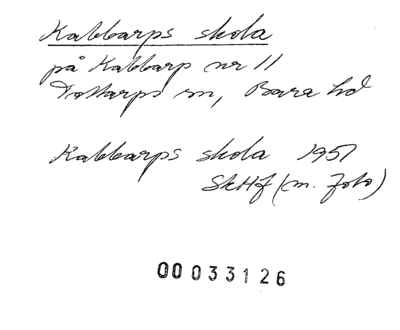 Kabbarps skola
på Kabbarp nr 11
Tottarps sn, Bara hd
Kabbarps skola 1951
SkHf (m. foto)
00033126